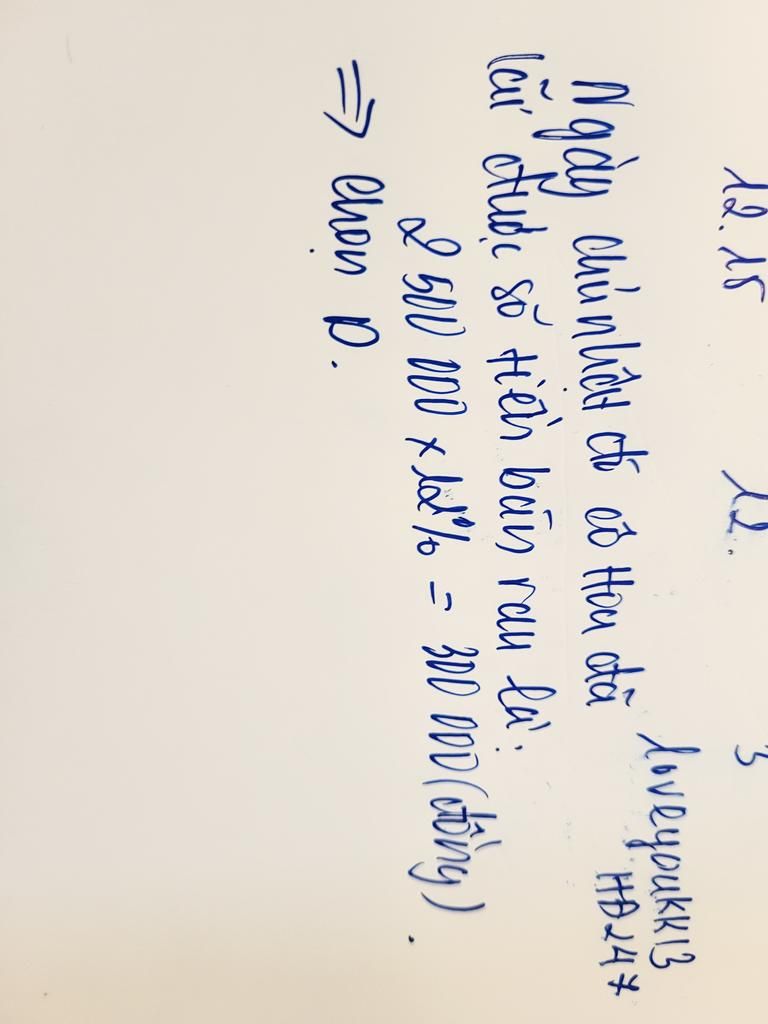 12.15 12. 3
loveyoukk13
HĐ247
Ngày chủ nhật đó cô Hoa đã
lãi được số tiền bán rau là:
2 500 000 x 12% = 300 000 (đồng).
=> chọn D.